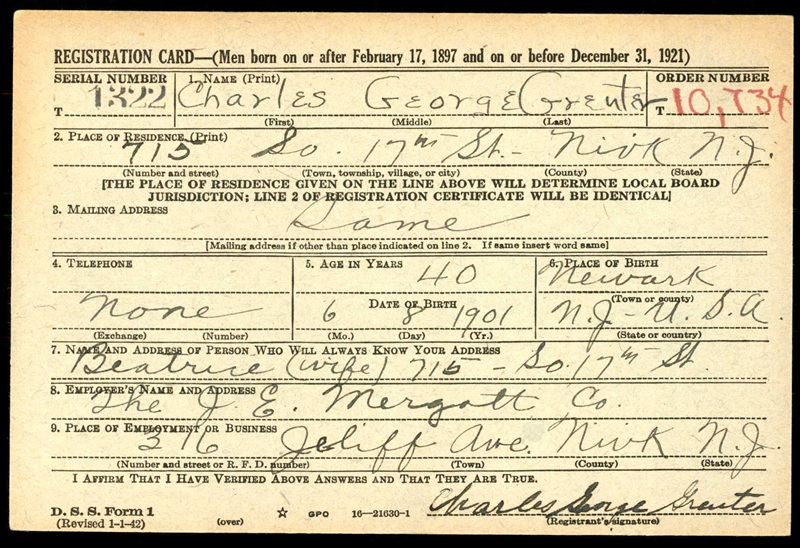 REGISTRATION CARD—(Men born on or after February 17, 1897 and on or before December 31, 1921)
SERIAL NUMBER 1. NAME (Print) ORDER NUMBER
T 1322 Charles George Greuter T 10,734
(First) (Middle) (Last)
2. PLACE OF RESIDENCE (Print)
715 So. 17th St. - Nwk N.J.
(Number and street) (Town, township, village, or city) (County) (State)
[THE PLACE OF RESIDENCE GIVEN ON THE LINE ABOVE WILL DETERMINE LOCAL BOARD
JURISDICTION; LINE 2 OF REGISTRATION CERTIFICATE WILL BE IDENTICAL]
3. MAILING ADDRESS
Same
[Mailing address if other than place indicated on line 2. If same insert word same]
4. TELEPHONE 5. AGE IN YEARS 6. PLACE OF BIRTH
40 Newark
DATE OF BIRTH (Town or county)
None 6 8 1901 N.J - U.S.A.
(Exchange) (Number) (Mo.) (Day) (Yr.) (State or country)
7. NAME AND ADDRESS OF PERSON WHO WILL ALWAYS KNOW YOUR ADDRESS
Beatrice (wife) 715 - So. 17th St.
8. EMPLOYER'S NAME AND ADDRESS
The J. E. Mergott Co.
9. PLACE OF EMPLOYMENT OR BUSINESS
316 Jeliff Ave. Nwk N.J.
(Number and street or R. F. D. number) (Town) (County) (State)
I AFFIRM THAT I HAVE VERIFIED ABOVE ANSWERS AND THAT THEY ARE TRUE.
Charles George Greuter
D. S. S. Form 1
(Revised 1-1-42) (over) ☆ GPO 16—21630-1 (Registrant's signature)